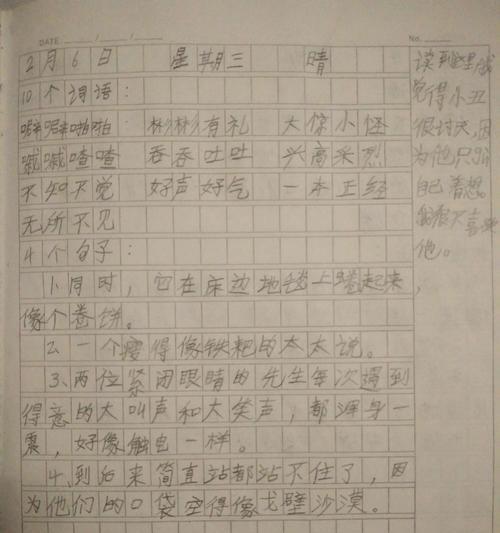 DATE / / No.
2月6日 星期三 晴
10个词语:
噼噼啪啪 彬彬有礼 大惊小怪
嘁嘁喳喳 吞吞吐吐 兴高采烈
不知不觉 好声好气 一本正经
无所不见
4个句子:
1、同时，它在床边地毯上蜷起来，
像个卷饼。
2、一个瘦得像铁耙的太太说。
3、两位紧闭眼睛的先生每次遇到
得意的大叫声和大笑声，都浑身一
震，好像触电一样。
4、到后来简直站都站不住了，因
为他们的口袋空得像戈壁沙漠。
读到这里我
觉得小丑
很讨厌，因
为他只为
自己着想。
我很不喜欢
他。